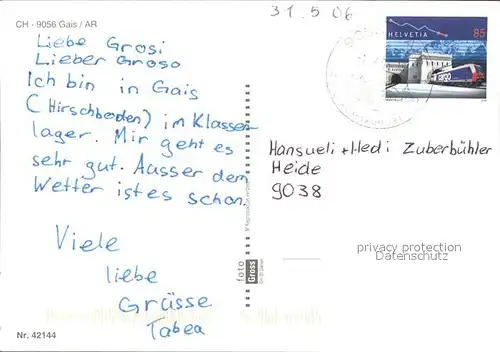 31.5 06
CH - 9056 Gais / AR
Liebe Grosi
Lieber Groso
Ich bin in Gais
(Hirschboden) im Klassen
lager. Mir geht es
sehr gut. Ausser dem
Wetter ist es schön.
Viele
liebe
Grüsse
Tabea
Nr. 42144
foto
Gross
HELVETIA
85
Hansueli + Hedi Zuberbühler
Heide
9038
privacy protection
Datenschutz